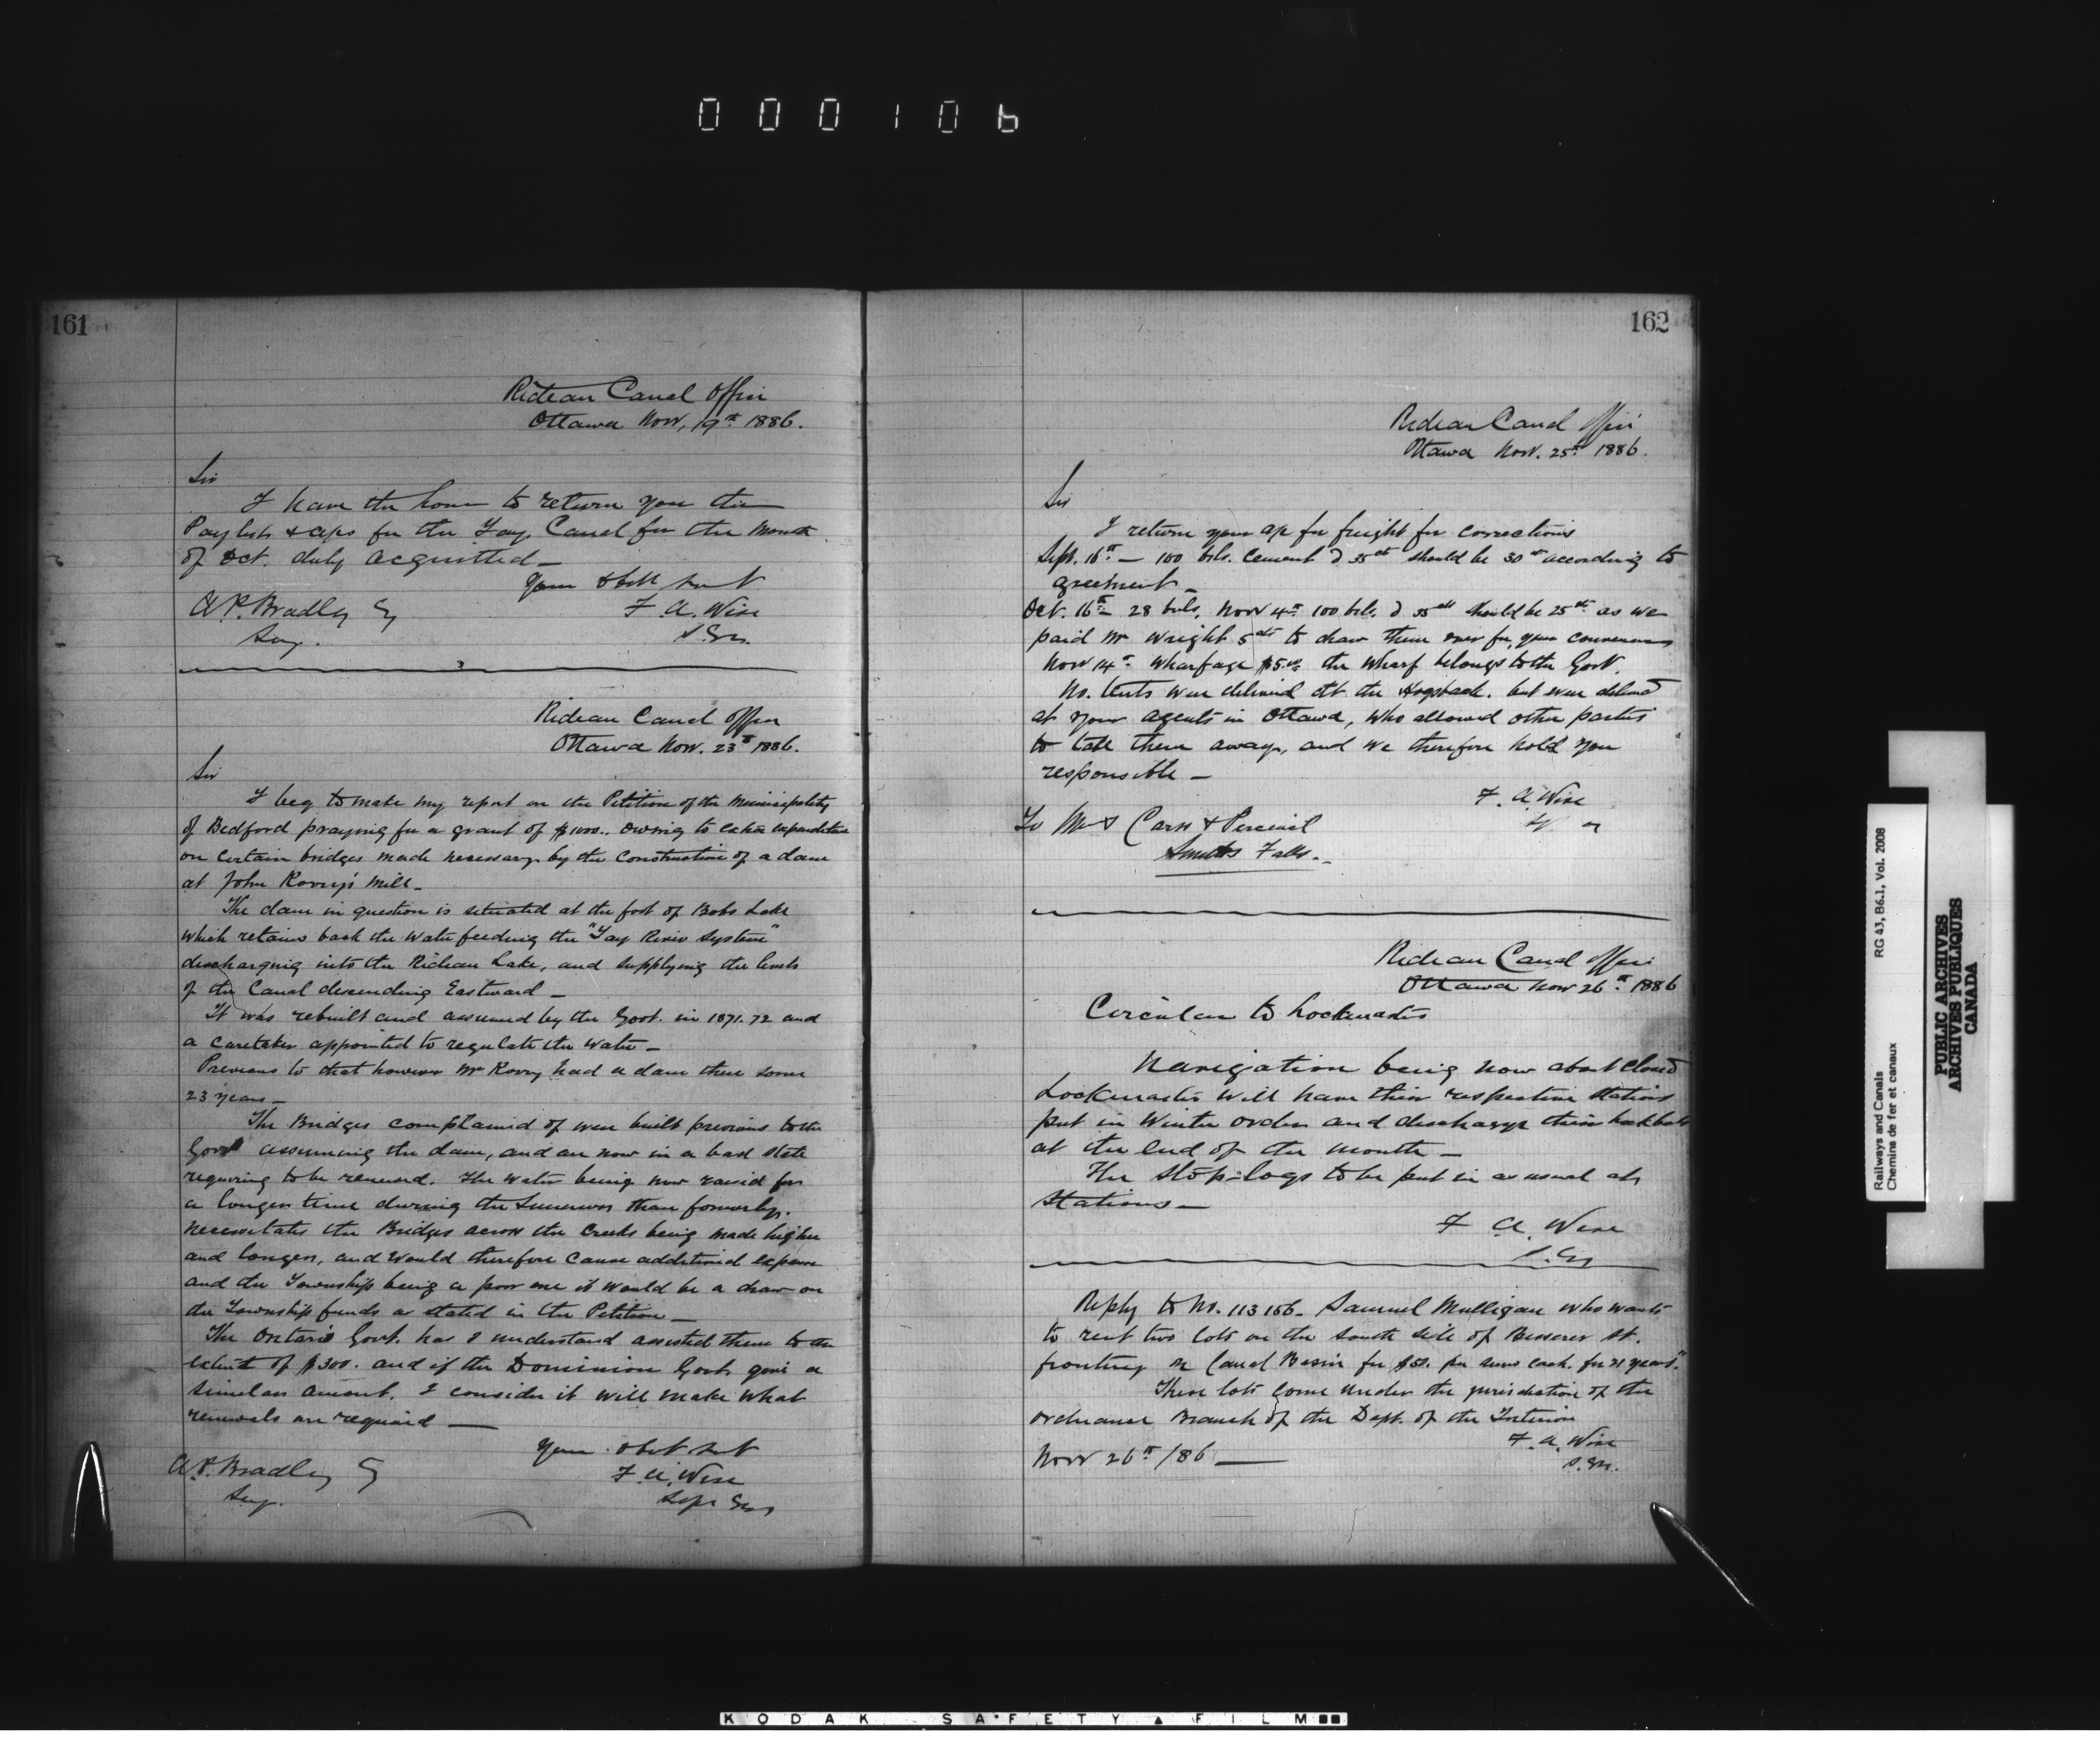 000106
161
Rideau Canal Office
Ottawa Nov. 19th 1886.
Sir
I have the honor to return you the
Pay lists & a/cs for the Tay Canal for the Month
of Oct. duly acquitted_
Your obdt Servt
A. P. Bradley Esq
F. A. Wise
Secy.
S. Eng.
Rideau Canal Office
Ottawa Nov. 23rd 1886.
Sir
I beg to make my report on the Petition of the Municipality
of Bedford praying for a grant of $1000.. owing to extra expenditure
on certain bridges made necessary by the construction of a dam
at John Korry's Mill_
The dam in question is situated at the foot of Bobs Lake
which retains back the water feeding the "Tay River System"
discharging into the Rideau Lake, and supplying the levels
of the Canal descending Eastward_
It was rebuilt and assumed by the Govt. in 1871.72 and
a Caretaker appointed to regulate the water_
Previous to that however Mr Korry had a dam there some
23 years_
The Bridges complained of were built previous to the
Govt assuming the dam, and are now in a bad state
requiring to be renewed. The water being now raised for
a longer time during the Summer than formerly.
necessitates the Bridges across the Creeks being made higher
and longer, and would therefore cause additional expense
and the Township being a poor one it would be a draw on
the Township funds as stated in the Petition_
The Ontario Govt. has I understand assisted them to the
extent of $300. and if the Dominion Govt. give a
similar amount, I consider it will make what
renewals are required_
Your obdt Servt
A. P. Bradley Esq
F. A. Wise
Secy.
Supt Eng
162
Rideau Canal Office
Ottawa Nov. 25th 1886.
Sir
I return your a/c for freight for corrections
Sept. 16th_ 100 brls. Cement @ 35cts should be 30cts according to
agreement_
Oct. 16th_ 28 brls, Nov 4th 100 brls. @ 35cts should be 25cts as we
paid Mr Wright 5cts to draw them over for your convenience
Nov 14th Wharfage $5.00 the wharf belongs to the Govt.
No. tents were delivered at the Hogsback. but were delivered
at your agents in Ottawa, who allowed other parties
to take them away, and we therefore hold you
responsible_
F. A. Wise
To Mrs Carss & Percival
Smiths Falls._
Rideau Canal Office
Ottawa Nov 26th 1886
Circular to Lockmasters
Navigation being now about closed
Lockmasters will have their respective Stations
put in Winter order and discharge their
at the end of the month_
The Stop-logs to be put in as usual at
Stations_
F. A. Wise
S. Eng
Reply to No. 113156_ Samuel Mulligan who wants
to rent two lots on the South side of Besserer St.
fronting on Canal Basin for $50. per each. for 21 years."
These lots come under the jurisdiction of the
Ordnance Branch of the Dept. of the Interior
F. A. Wise
Nov 26th/86
S. Eng.
Railways and Canals RG 43, B6.1, Vol. 2008
Chemins de fer et canaux
PUBLIC ARCHIVES
ARCHIVES PUBLIQUES
CANADA
KODAK SAFETY FILM